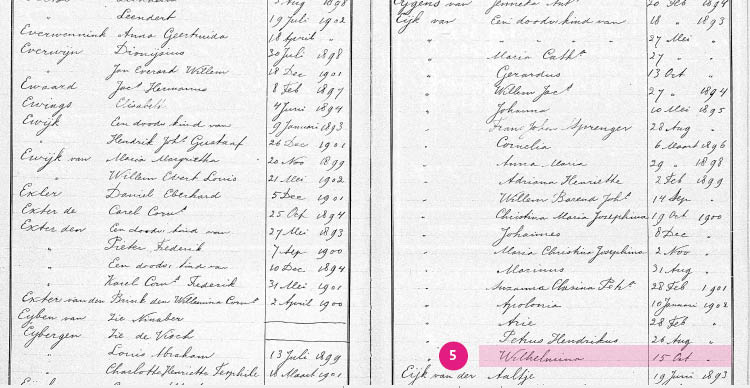 Leendert 19 Juli 1902
Everwennink Anna Geertruida 18 April "
Everwijn Dionysius 30 Juli 1898
" Jan Everard Willem 18 Dec 1901
Ewaard Jacs Hermanus 8 Feb 1897
Ewings Elisabeth 4 Juni 1894
Ewijk Een doodv. kind van 9 Januari 1893
" Hendrik Johs Gustaaf 26 Dec 1901
Ewijk van Maria Margaretha 20 Nov 1899
" Willem Evert Louis 21 Mei 1902
Exler Daniel Eberhard 5 Dec 1901
Exter de Carel Corns 25 Oct 1894
Exter den Een doodv. kind van 27 Mei 1893
" Pieter Frederik 7 Sep 1900
" Een doodv. kind van 10 Dec 1894
" Karel Corns Frederik 31 Mei 1901
Exter van den Brink den Willemina Corns 2 April 1900
Eyben van Zie Ninaber
Eybergen Zie de Visch
" Louis Abraham 13 Juli 1899
" Charlotte Henriette 18 Maart 1901
Eijgens van Jenneke 20 Feb 1894
Eijk van Een doodv. kind van 18 " 1893
" " " " " 27 Mei "
" Maria Caths 27 " "
" Gerardus 13 Oct "
" Willem Jacs 27 " 1894
" Johanna 10 Mei 1895
" Frans Johan Sprenger 28 Aug "
" Cornelia 6 Maart 1896
" Anna Maria 29 " 1898
" Adriana Henriette 2 Feb 1899
" Willem Barend Johs 14 Sep "
" Christina Maria Josephina 19 Oct 1900
" Johannes 8 Dec "
" Maria Christina Josephina 2 Nov "
" Marinus 31 Aug "
" Suzanna Clasina 28 Feb 1901
" Apolonia 10 Januari 1902
" Arie 28 Feb "
" Petrus Hendrikus 26 Aug "
5 " Wilhelmina 15 Oct "
Eijk van der Aaltje 19 Juni 1893